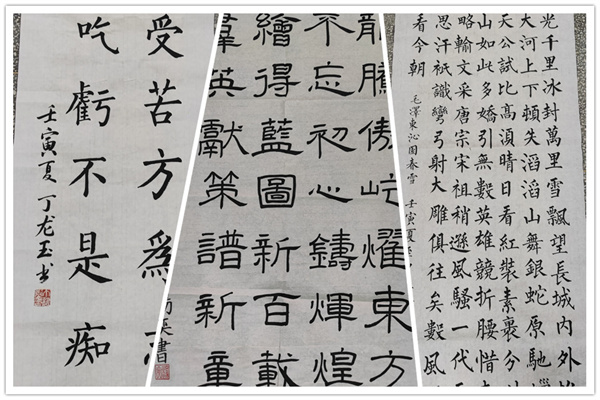 受苦方為
吃虧不是痴
壬寅夏丁龙玉书
龍騰傲屹耀東方
不忘初心鑄輝煌
繪得藍圖新百載
羣英獻策譜新章
書
光千里冰封萬里雪飄望長城内外
大河上下頓失滔滔山舞銀蛇原馳
天公試比高須晴日看紅裝素裹分外
山如此多嬌引無數英雄競折腰惜
略輸文采唐宗宋祖稍遜風騷一代天
思汗祇識彎弓射大雕俱往矣數風
看今朝
毛澤東沁園春雪 壬寅夏